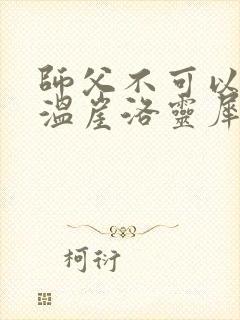 師父不可以
溫崖洛靈犀
柯衍